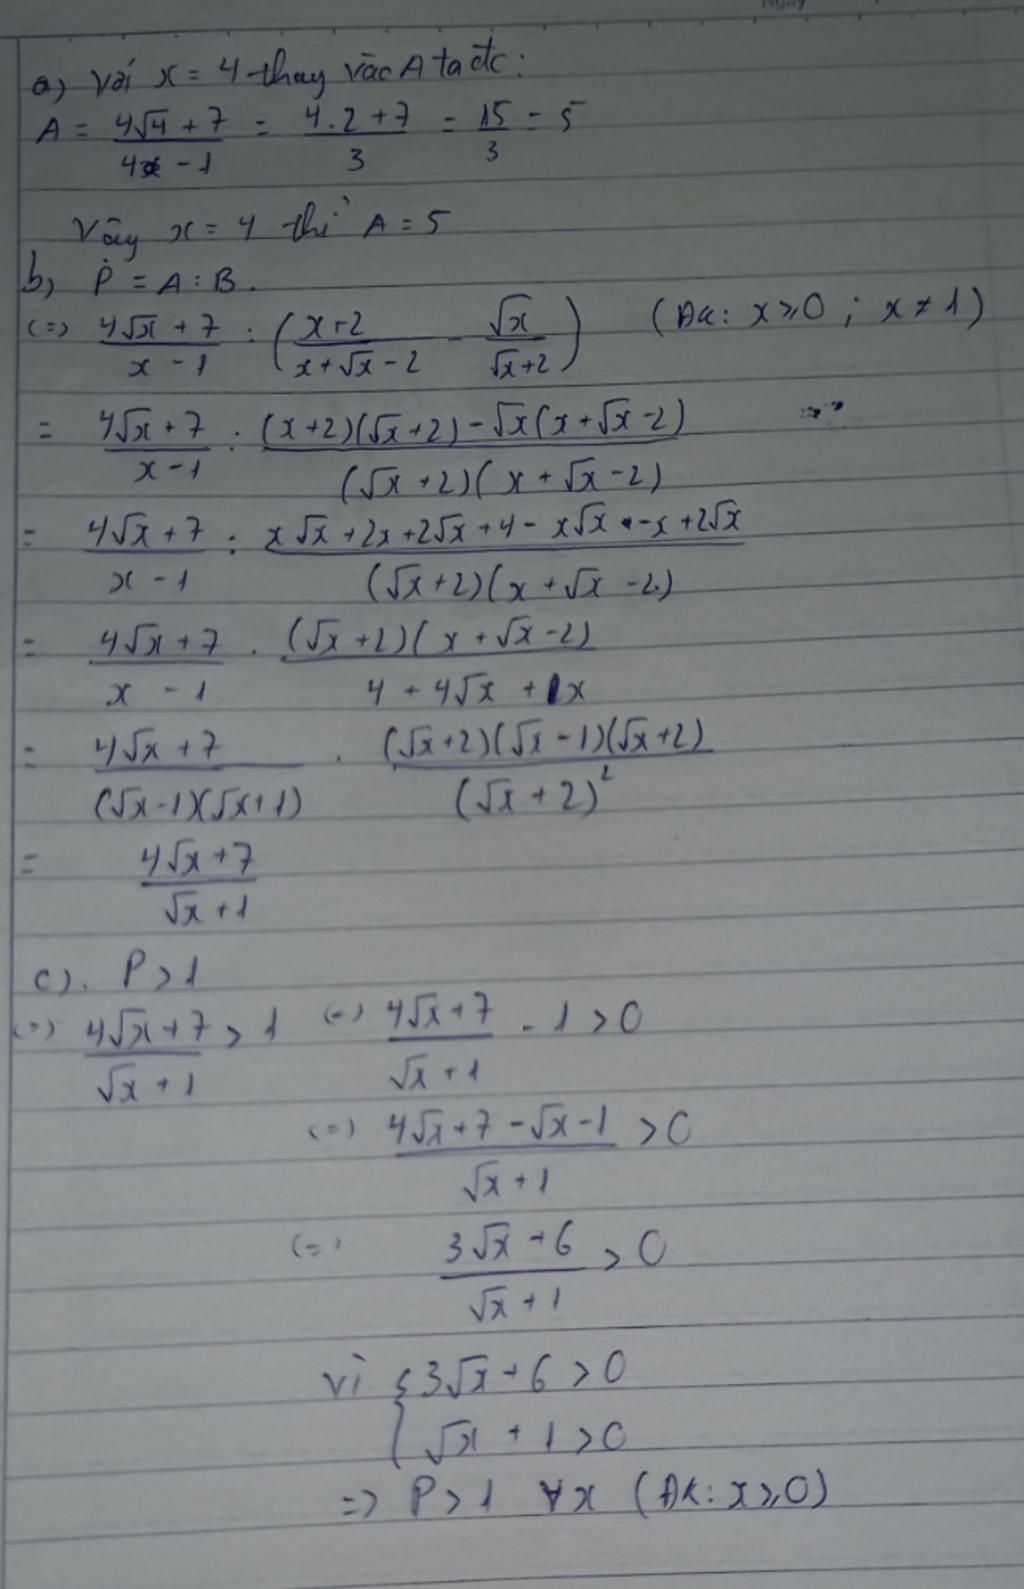 a) Với x = 4 thay vào A ta đc:
A = (4√4 + 7)/(4 - 1) = (4.2 + 7)/3 = 15/3 = 5
Vậy x = 4 thì A = 5
b, P = A : B.
(=) (4√x + 7)/(x - 1) : ((x+2)/(x+√x-2) - √x/(√x+2)) (ĐK: x ≥ 0 ; x ≠ 1)
= (4√x + 7)/(x-1) : ((x+2)(√x+2) - √x(x+√x-2))/((√x+2)(x+√x-2))
= (4√x + 7)/(x-1) : (x√x + 2x + 2√x + 4 - x√x - x + 2√x)/((√x+2)(x+√x-2))
= (4√x + 7)/(x-1) . ((√x+2)(x+√x-2))/(4 + 4√x + x)
= (4√x + 7)/((√x-1)(√x+1)) . ((√x+2)(√x-1)(√x+2))/(√x+2)²
= (4√x+7)/(√x+1)
c). P > 1
(=) (4√x+7)/(√x+1) > 1 (=) (4√x+7)/(√x+1) - 1 > 0
(=) (4√x+7-√x-1)/(√x+1) > 0
(=) (3√x+6)/(√x+1) > 0
vì { 3√x+6 > 0
√x + 1 > 0
=> P > 1 ∀x (ĐK: x ≥ 0)